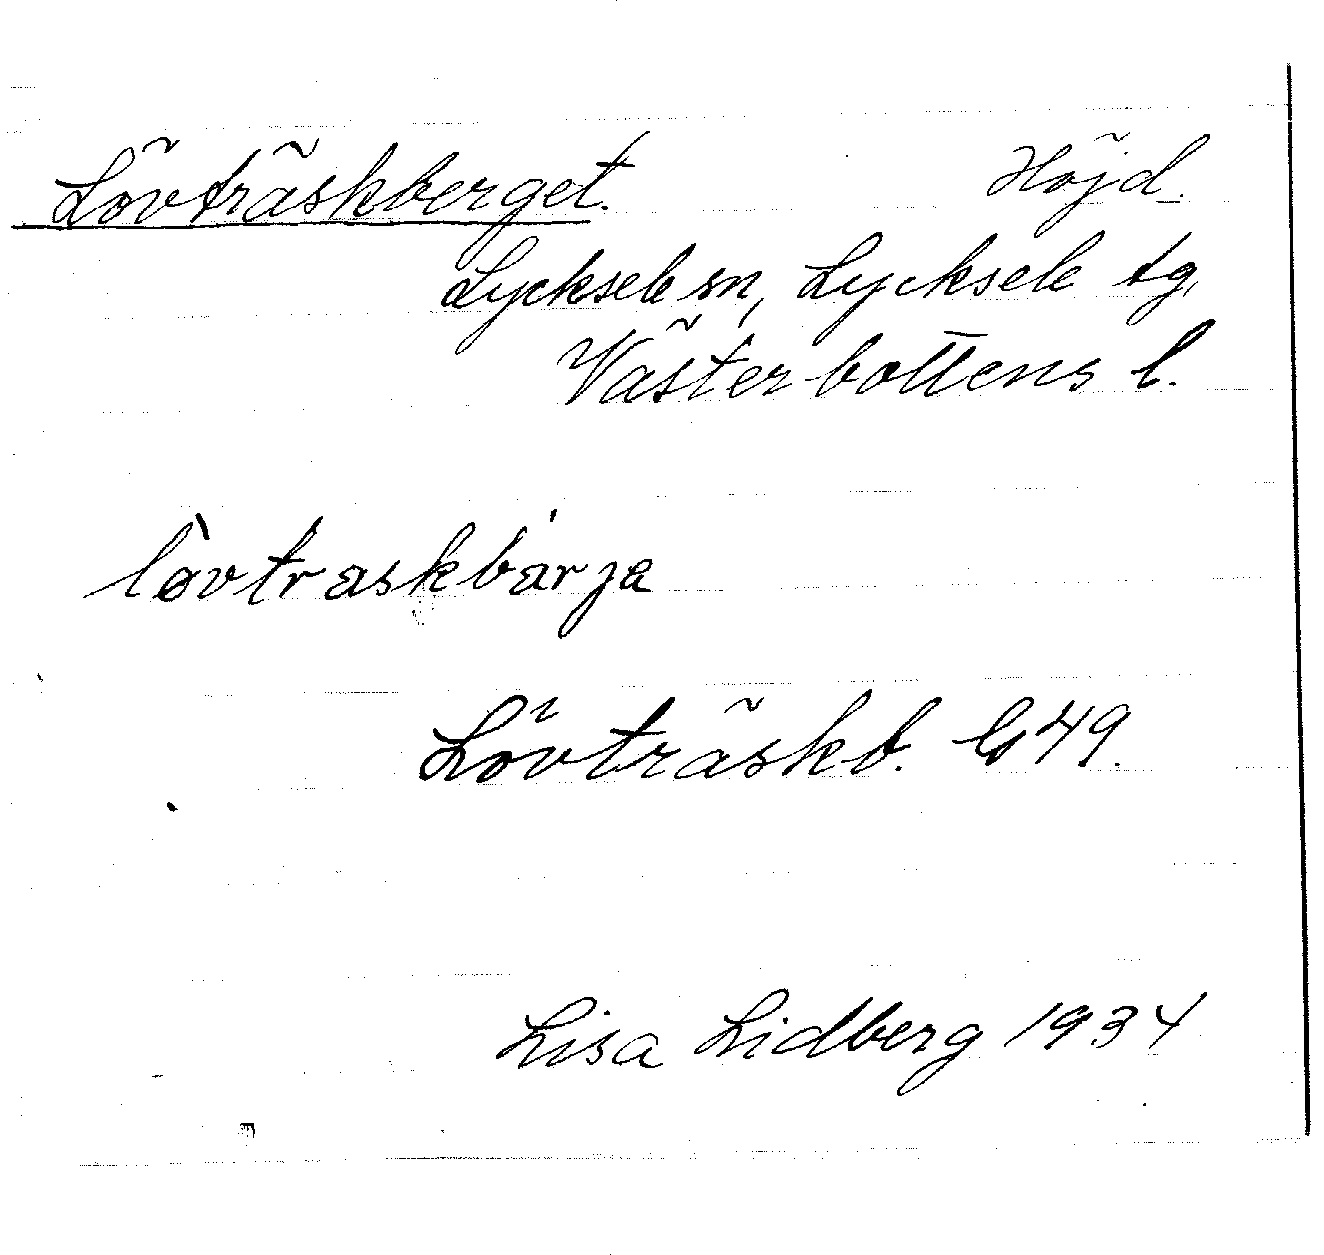 Lövträskberget. Höjd.
Lycksele sn, Lycksele tg,
Västerbottens l.
lövtraskbarja
Lövträskb. G49.
Lisa Lidberg 1934